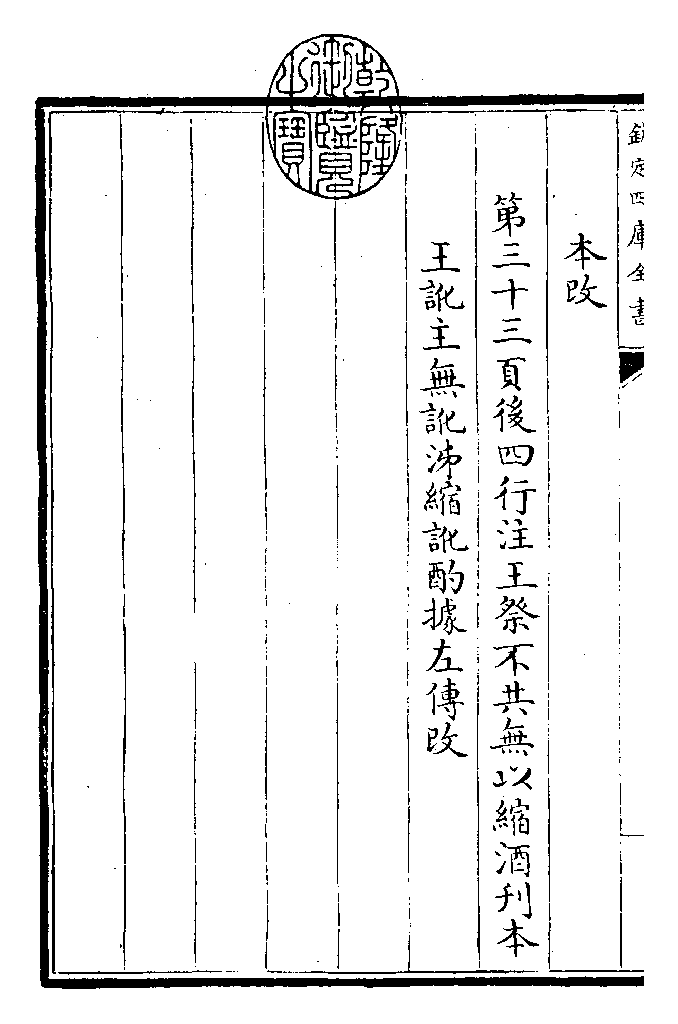 欽定四庫全書
本改
第三十三頁後四行注王祭不共無以縮酒刋本
王訛主無訛沸縮訛酌據左傳改
乾隆
御覽
之寶